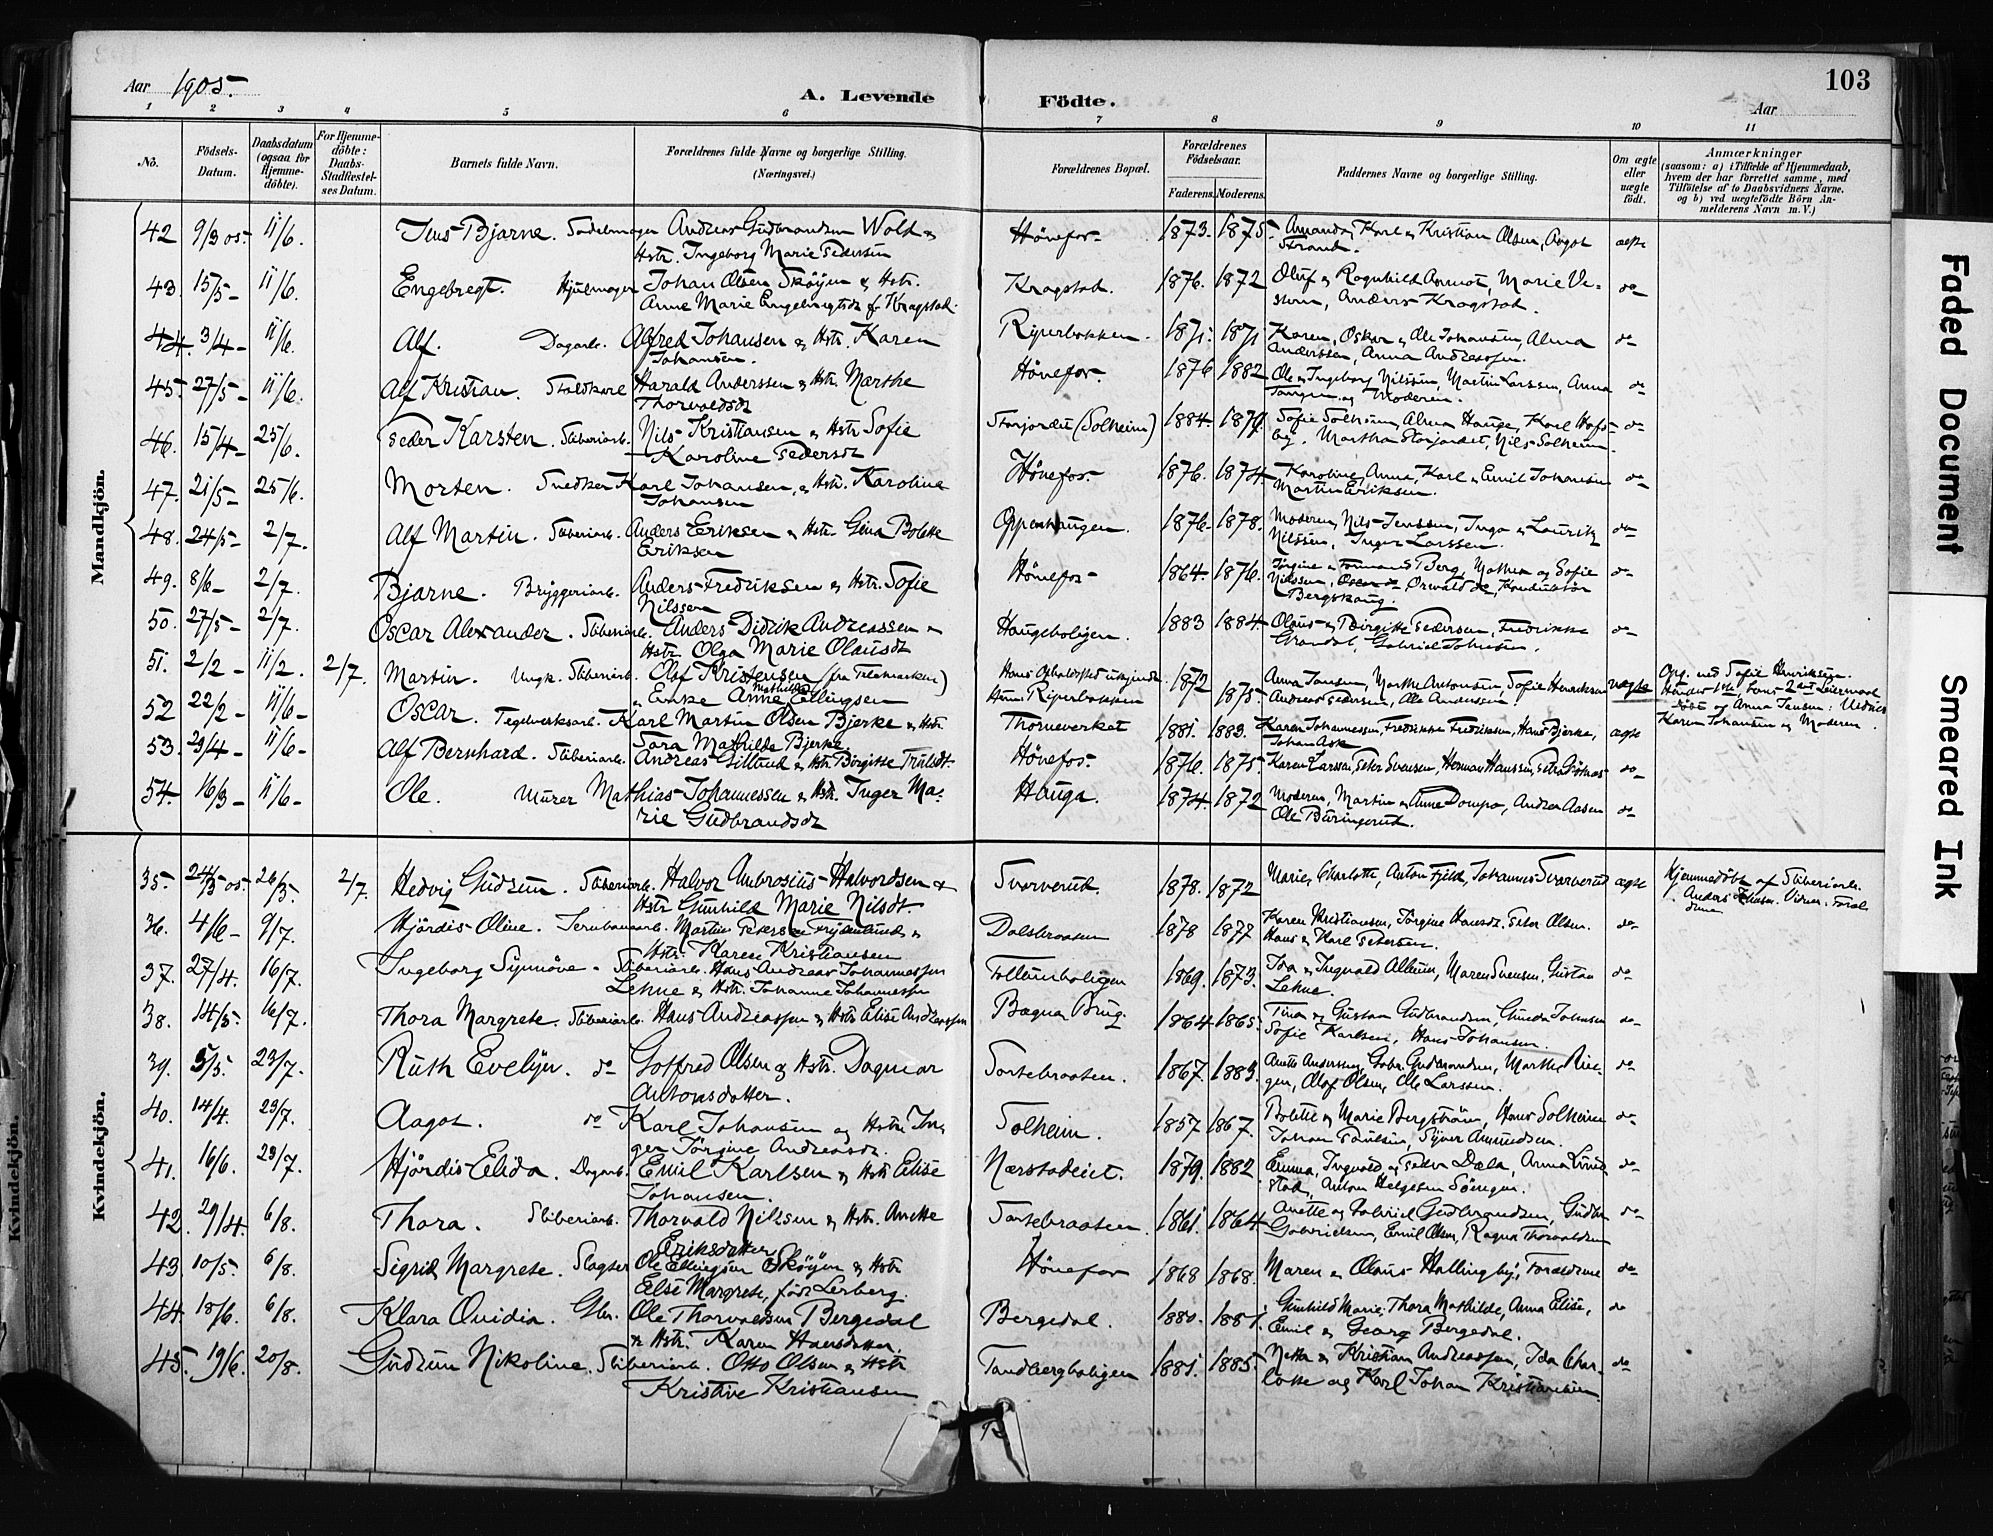 Aar 1905. A. Levende Födte. Aar 103
1 2 3 4 5 6 7 8 9 10 11
No. Födsels-Datum. Daabsdatum (ogsaa for Hjemme-döbte). For Hjemme-döbte: Daabs-Stadfæstel-ses Datum. Barnets fulde Navn. Forældrenes fulde Navne og borgerlige Stilling. (Næringsvei.) Forældrenes Bopæl. Forældrenes Födselsaar. Faderens. Moderens. Faddernes Navne og borgerlige Stilling. Om ægte eller uægte födt. Anmærkninger (saasom: a) i Tilfælde af Hjemmedaab, hvem der har forrettet samme, med Tilföielse af to Daabsvidners Navne, og b) ved uægtefödte Börn An-melderens Navn m. V.)
Mandkjön.
42 9/3 05. 11/6. Jens Bjarne. Sadelmager Andreas Gudbrandsen Wold & Hönefos 1873. 1875. Amanda, Karl & Kristian Olsen, Aagot ægte
Hstr. Ingeborg Marie Pedersen Strand.
43. 15/5 11/6. Engebregt. Hjulmager Johan Olsen Skøyen & Hstr. Kragstad. 1876. 1872 Oluf & Ragnhild Aamot, Marie Ve- do
Anne Marie Engebregtsdt f. Kragstad. Anders Kragstad.
44. 3/4 11/6. Alf. Dagarb. Alfred Johansen & Hstr. Karen Riperbakken. 1871. 1871 Karen, Oskar & Ole Johansen, Alma do
Johansen. Anderssen, Anna Andreassen.
45. 27/5 11/6. Alf Kristian. Staldkarl Harald Anderssen & Hstr. Marthe Hönefos. 1876 1882 Ole & Ingeborg Nilssen, Martin Larssen, Anna do
Thorvaldsdt Tangen og Moderen.
46. 15/4 25/6. Peder Karsten. Sliberiarb. Nils Kristiansen & Hstr Sofie Storjordet (Solheim) 1884. 1879. Sofie Solheim, Alma Hauge, Karl Hofs- do
Karoline Pedersdt by. Martha Storjordet, Nils Solheim
47. 21/5 25/6. Morten. Snedker Karl Johansen, & Hstr. Karoline Hönefos. 1876. 1874. Karoline, Anna, Karl & Emil Johansen do
Johansen Martin Eriksen.
48. 24/5 2/7. Alf Martin. Sliberiarb. Anders Eriksen & Hstr. Gina Bolette Oppenhaugen. 1876. 1878. Moderen, Nils Jenssen, Inga & Lauritz do
Eriksen Nilssen, Inger Larssen.
49. 8/6 2/7. Bjarne. Bryggeriarb. Anders Fredriksen & Hstr. Sofie Hönefos 1864. 1876. Jörgine & Berg, Mathea og Sofie do
Nilssen Nilssen, Oscar do, Osvald do, Konduktör
Bergskaug.
50. 27/5 2/7. Oscar Alexander. Sliberiarb. Anders Didrik Andreassen & Haugeboligen. 1883 1884. Olaus & Birgitte Pedersen, Fredrikke do
Hstr. Olga Marie Olausdt Grandal, Gabriel Johnsen.
51. 2/2 11/2. 2/7. Martin. Ungk. Sliberiarb. Olaf Kristensen (fra Telemarken) Hans Opholdssted ukjendt 1872 Anna Jansen, Marthe Antonsen, Sofie Henriksen uægte Opg. ved Sofie Henriksen.
& Enke Anne Mathilde Ellingsen Hun: Riperbakken 1875 Andreas Pedersen, Ole Anderssen Hendes 1ste, hans 2det Leiermaal
52 22/2 11/6 Oscar. Teglverksarb. Karl Martin Olsen Bjerke & Hstr. Thorneverket 1881. 1883. Karen Johannessen, Fredrikke Fredriksen, Hans Bjerke, ægte döbt af Anna Jansen: Vidner
Sara Mathilde Bjerke. Johan Ask Karen Johansen & Moderen.
53. 23/4 11/6 Alf Bernhard. Sliberiarb. Andreas Gillund & Hstr. Birgitte Trulsdt. Hönefos. 1876. 1875. Karen Larssen, Peter Svensen, Herman Hanssen, do
54. 16/3 11/6 Ole. Murer Mathias Johannessen & Hstr. Inger Ma- Hauga. 1874. 1872 Moderen, Martin & Anne Dompa, Andrea Aasen do
rie Gudbrandsdt Ole Buringerud.
Kvindekjön.
35. 24/3 05. 26/3. 2/7. Hedvig Gudrun. Sliberiarb. Halvor Ambrosius Halvordsen & Svarverud. 1878. 1872 Marie, Charlotte, Anton Fjeld, Johannes Svarverud ægte Hjemmedöbt af Sliberiarb.
Hstr Gunhild Marie Nilsdt. Anders Vidner: Foræl
drene
36. 4/6 9/7. Hjördis Oline. Jernbanearb. Martin Petersen & Dalsbraaten 1878 1877 Karen Kristiansen, Jörgine Hansdt. Peter Olsen. do
Hstr. Karen Kristiansen Hans & Karl Petersen.
37. 27/4. 16/7. Ingeborg Synnöve. Sliberiarb. Hans Andreas Johannessen Follumboligen 1869. 1873. Ida & Ingvald Allum, Maren Svensen, Gustav do
Lehne & Hstr. Johanne Johannessen Lehne.
38. 14/5. 16/7. Thora Margrete. Sliberiarb. Hans Andreassen & Hstr. Elise Andreassen Bægna Brug. 1864 1865. Tina & Gustav Gudbrandsen, Gunda Johnsen do
Sofie Karlsen, Hans Johansen.
39. 5/5. 23/7. Ruth Evelyn. do Gotfred Olsen og Hstr. Dagmar Sortebraaten. 1867. 1883. Anette Andersen, Gabr. Gudbrandsen, Marthe Rin- do
Antonsdatter. gen, Olaf Olsen, Ole Larssen.
40. 14/4. 23/7. Aagot. do Karl Johansen og Hstr. In- Solheim. 1857 1867. Bolette & Marie Bergström, Hans Solheim do
ger Jörgine Andreasdt. Johan Paulsen, Syver Amundsen.
41. 16/6. 23/7. Hjördis Elida. Dagarb. Emil Karlsen & Hstr Elise Nærstadeiet. 1879. 1882 Emma, Ingvald og Petra Dæla, Anna Lund do
Johansen. stad, Anton Helgesen Sörengen.
42. 29/4. 6/8. Thora. Sliberiarb. Thorvald Nilsen & Hstr. Anette Sortebraaten 1861. 1864 Anette og Gabriel Gudbrandsen, Gudbr. do
Eriksdatter Gabrielsen, Emil Olsen, Ragna Thorvaldsen
43. 10/5. 6/8. Sigrid Margrete. Slagter Ole Ellingsen Skøyen & Hstr Hönefos 1868 1868. Maren & Olaus Hallingby, Forældrene do
Else Margrete, född Lerberg.
44. 18/6. 6/8. Klara Ovidia. Gbr. Ole Thorvaldsen Bergedal Bergedal. 1880. 1881. Gunhild Marie, Thora Mathilde, Anna Elise, do
& Hstr. Karen Hansdatter. Emil & Georg Bergedal.
45. 19/6. 20/8. Gudrun Nikoline. Sliberiarb. Otto Olsen & Hstr Tandbergboligen 1881. 1885. Netta & Kristian Andreassen, Ida Char- do
Kristine Kristiansen lotte og Karl Johan Kristiansen
Kvindekjön.
Faded Document
Smeared Ink